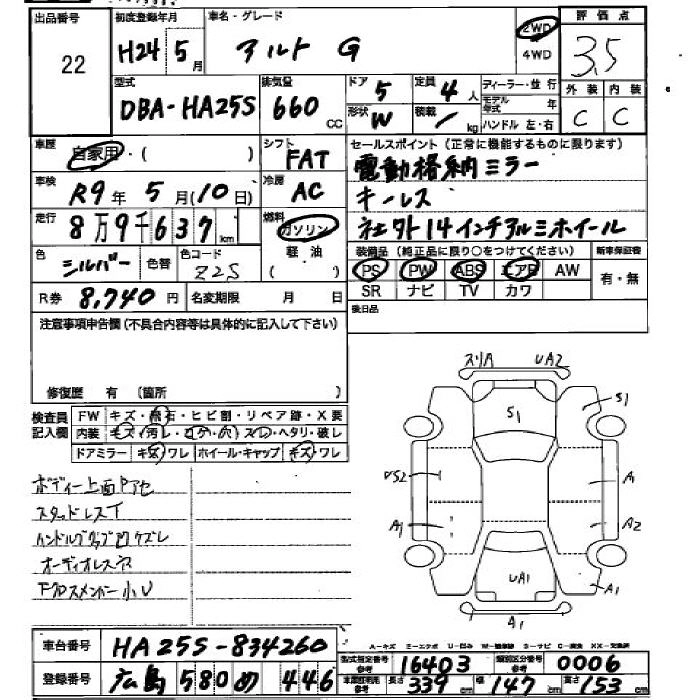 出品番号 初度登録年月 車名・グレード 2WD 評価点
22 H24 5月 アルト G 4WD 3.5
型式 排気量 ドア 5 定員 4人 ディーラー・並行 外装 内装
DBA-HA25S 660cc 形状 W 積載 / kg モデル年式 年 C C
ハンドル 左・右
車歴 自家用・( ) シフト FAT セールスポイント(正常に機能するものに限ります)
電動格納ミラー
車検 R9年5月(10日) 冷房 AC キーレス
走行 8万9千637km 燃料 ガソリン 社外14インチアルミホイール
軽油 装備品(純正品に限り○をつけてください) 新車保証書
色 シルバー 色替 色コード Z2S PS PW ABS エアB AW 有・無
R券 8,740円 名変期限 月 日 SR ナビ TV カワ
注意事項申告欄(不具合内容等は具体的に記入して下さい) 後日品
修復歴 有(箇所 )
スリA UA2
検査員 FW キズ・飛石・ヒビ割・リペア跡・X要 S1 S1
記入欄 内装 キズ・汚レ・コゲ・穴・スレ・ヘタリ・破レ
ドアミラー キズ・ワレ ホイール・キャップ キズ・ワレ
ボディー上面Pアセ US2 A1
スタッドレスT
ハンドルグラブ凹ケズレ A1 A2
オーディオレス
Fクロスメンバー小U UA1 A1
A1
車台番号 HA25S-834260 A-キズ E-エクボ U-凹み
型式指定番号 参考 16403 類別区分番号 参考 0006
登録番号 広島 580 め 446 長さ 339cm 幅 147cm 高さ 153cm